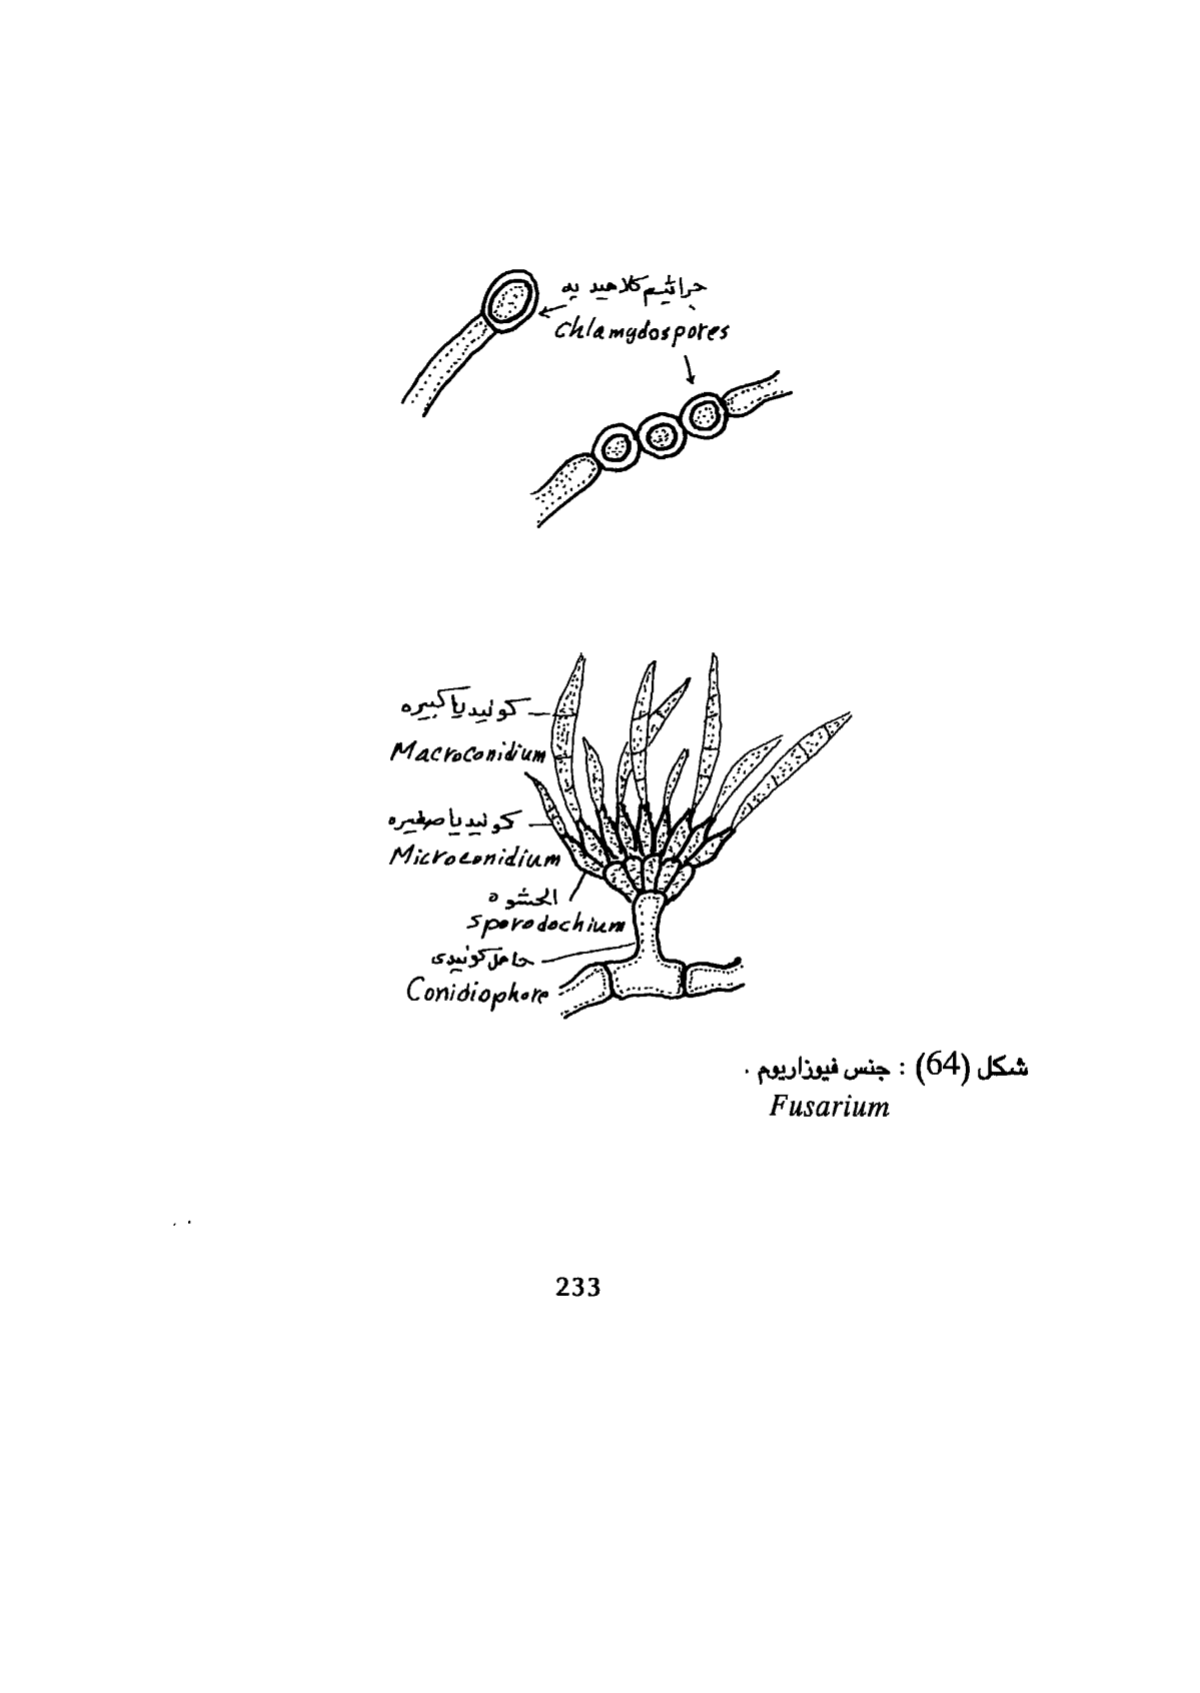 جراثيم كلاميديه
Chlamydospores
كونيديا كبيره
Macroconidium
كونيديا صغيره
Microconidium
الحشوه
Sporodochium
حامل كونيدي
Conidiophore
شكل (64) : جنس فيوزاريوم .
Fusarium
233